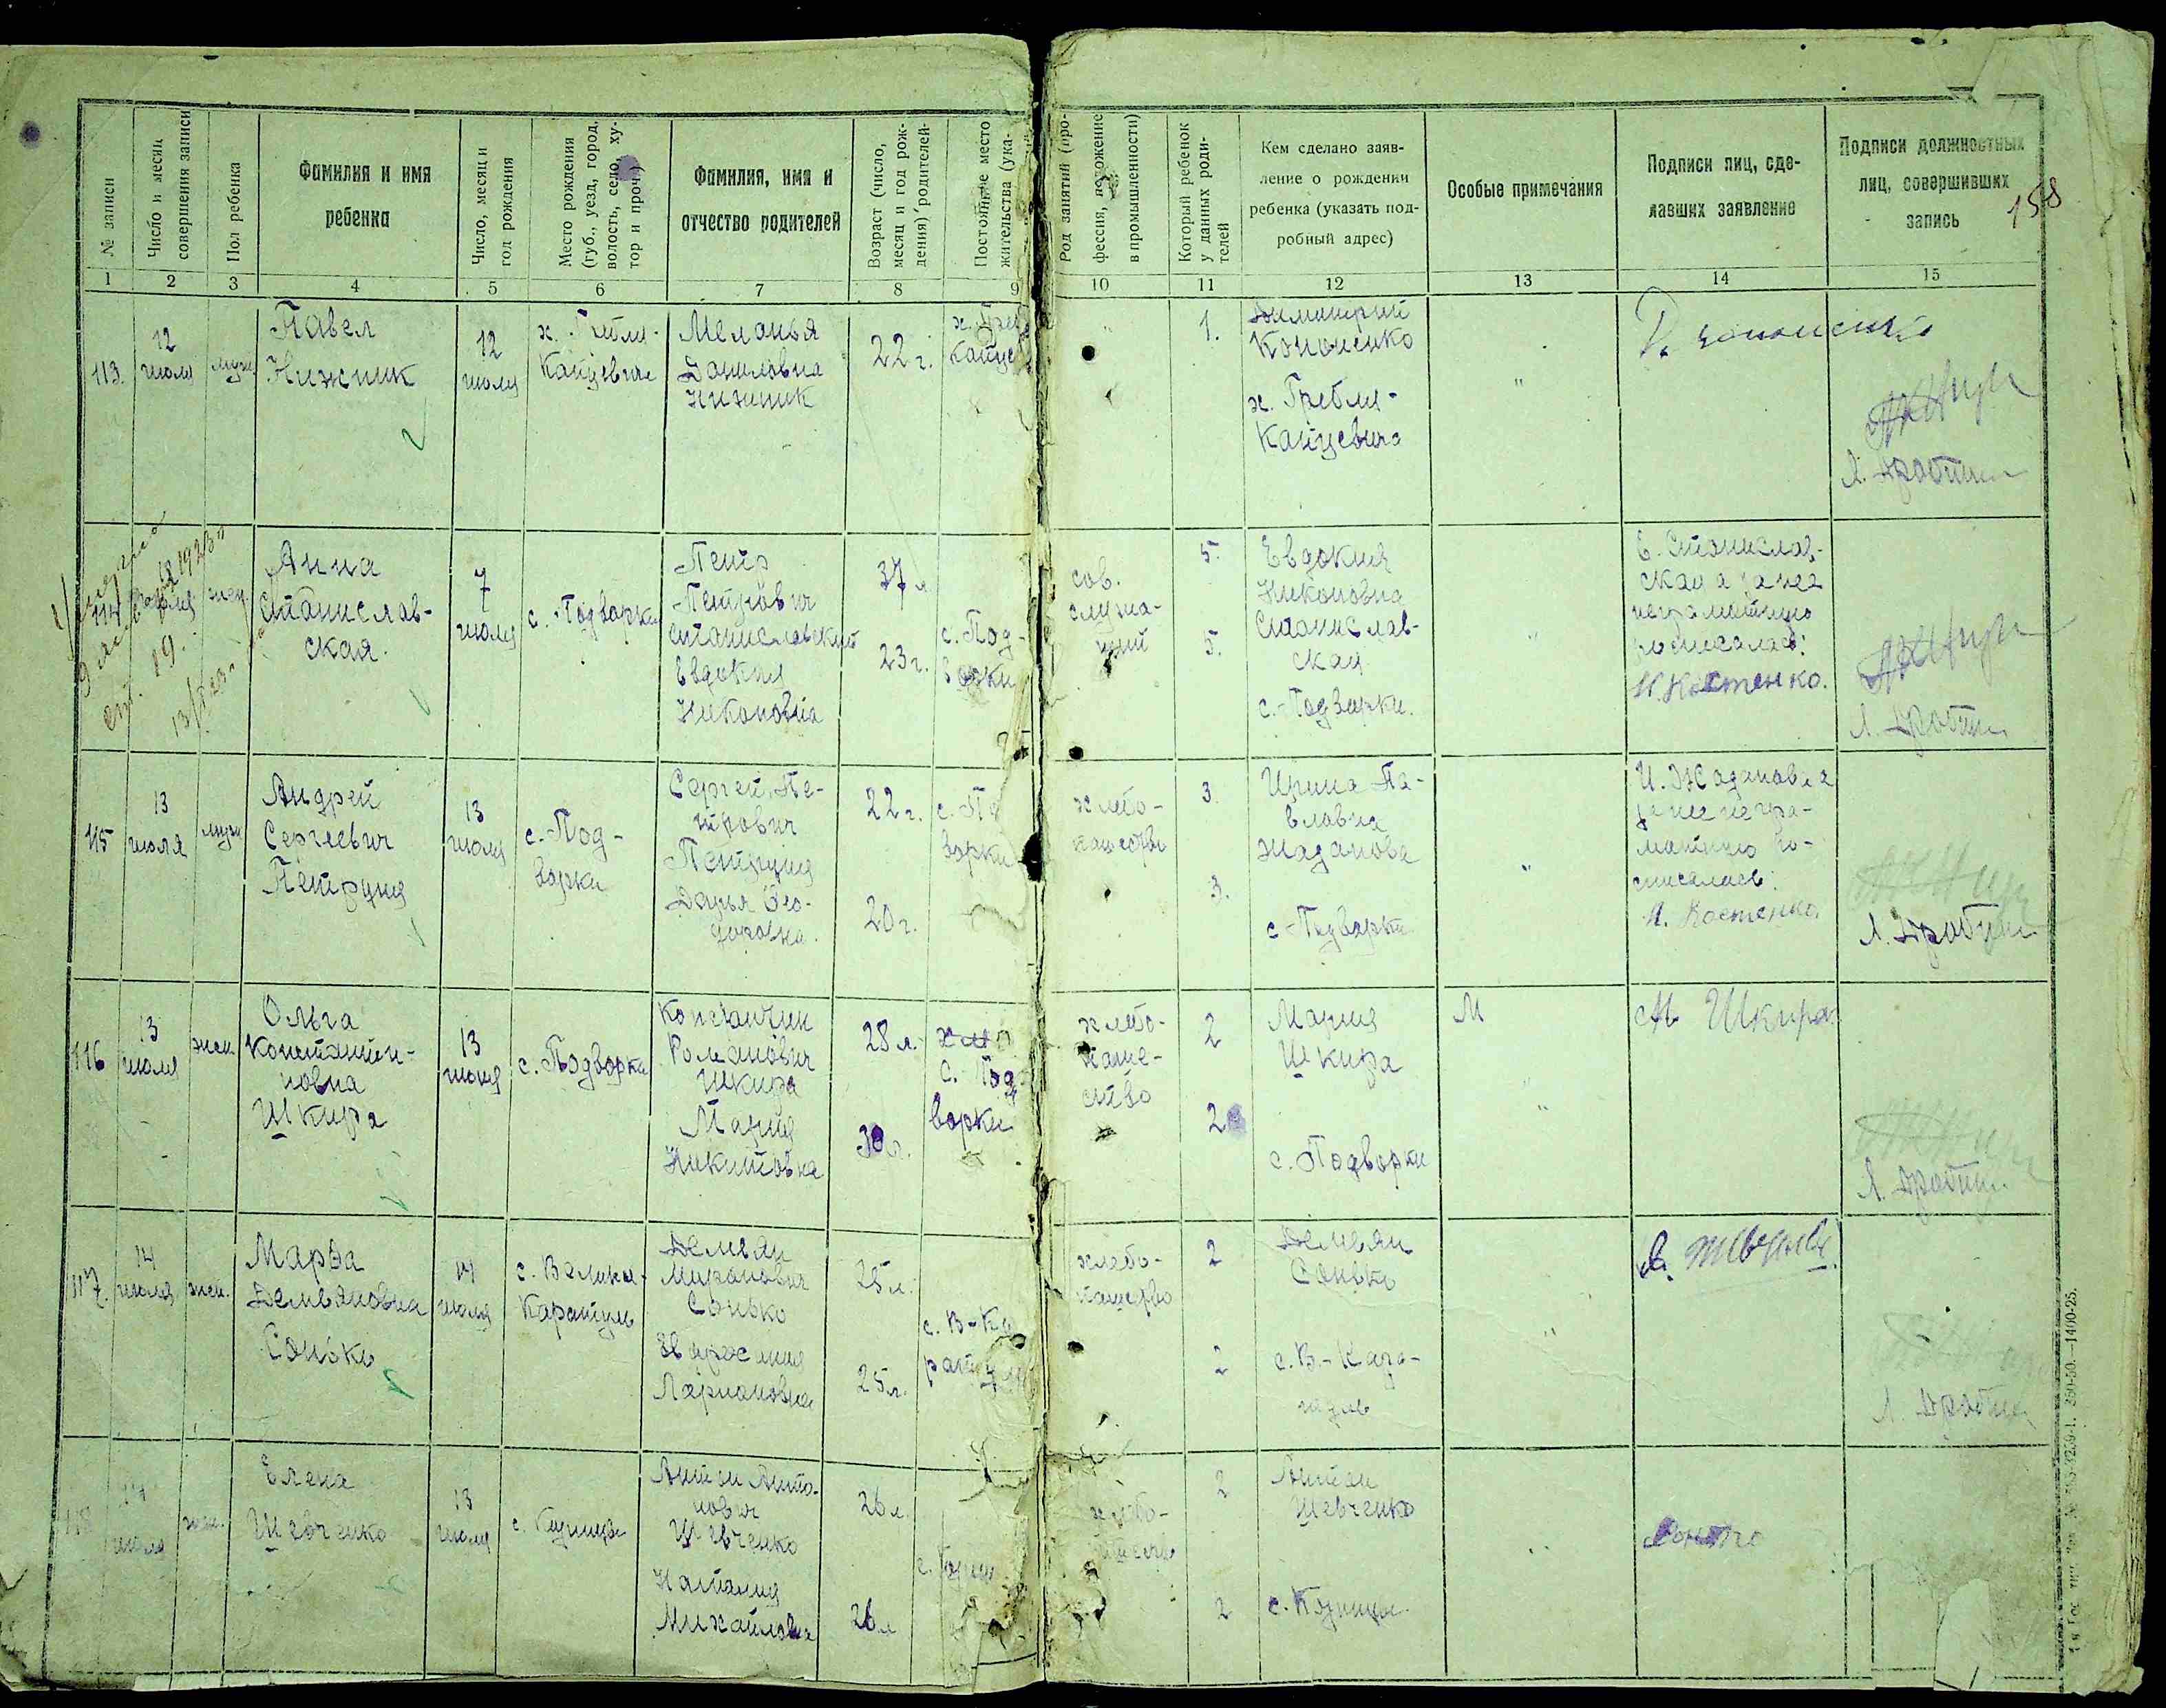 158
№ записи
Число и месяц
совершения записи
Пол ребенка
Фамилия и имя
ребенка
Число, месяц и
год рождения
Место рождения
(губ., уезд, город,
волость, село, ху-
тор и проч.)
Фамилия, имя и
отчество родителей
Возраст (число,
месяц и год рож-
дения) родителей
Постоянное место
жительства (ука-
Род занятий (про-
фессия, положение
в промышленности)
Который ребенок
у данных роди-
телей
Кем сделано заяв-
ление о рождении
ребенка (указать под-
робный адрес)
Особые примечания
Подписи лиц, сде-
лавших заявление
Подписи должностных
лиц, совершивших
запись
1 2 3 4 5 6 7 8 9 10 11 12 13 14 15
113.
12
июля
муж.
Павел
Нижник
12
июля
х. Гребли-
Канцевича
Меланья
Даниловна
Нижник
22 г.
1.
Димитрий
Кононенко
х. Гребли-
Канцевича
"
114
жен.
Анна
Станислав-
ская
7
июля
с. Подварки
Петр
Петрович
Станиславский
Евдокия
Никоновна
37 л
23 г.
с. Под-
варки
сов.
служа-
щий
5.
5.
Евдокия
Никоновна
Станислав-
ская
с. Подварки.
"
Е. Станислав-
ская а за нее
неграмотную
росписалась:
Н. Костенко.
115
13
июля
муж
Андрей
Сергеевич
Петруня
13
июля
с. Под-
варки
Сергей Пе-
трович
Петруня
Дарья Фео-
доровна.
22 г.
20 г.
варки
хлебо-
пашество
3.
3.
Ирина Па-
вловна
Жаданова
с. Подварки
"
И. Жаданова
за нее негра-
мотную ро-
списалась:
Н. Костенко.
116
13
июля
жен.
Ольга
Константи-
новна
Шкира
13
июля
с. Подворки
Константин
Романович
Шкира
Мария
Никитовна
28 л.
30 л.
с. Под
ворки
хлебо-
паше-
ство
2
2
Мария
Шкира
с. Подворки
М
"
М Шкира
117.
14
июля
жен.
Марфа
Демьяновна
Сонько
14
июля
с. Велика-
Каратуль
Демьян
Миронович
Сонько
Евфросиния
Ларионовна
25 л.
25 л.
с. В-Ка
ратуль
хлебо-
пашество
2
2
Демьян
Сонько
с. В.-Кара-
туль
"
118
14
июля
жен.
Елена
Шевченко
13
июля
Антон Анто-
нович
Шевченко
Наталия
Михайловна
26 л.
26 л
хлебо-
2
2
Антон
Шевченко
"